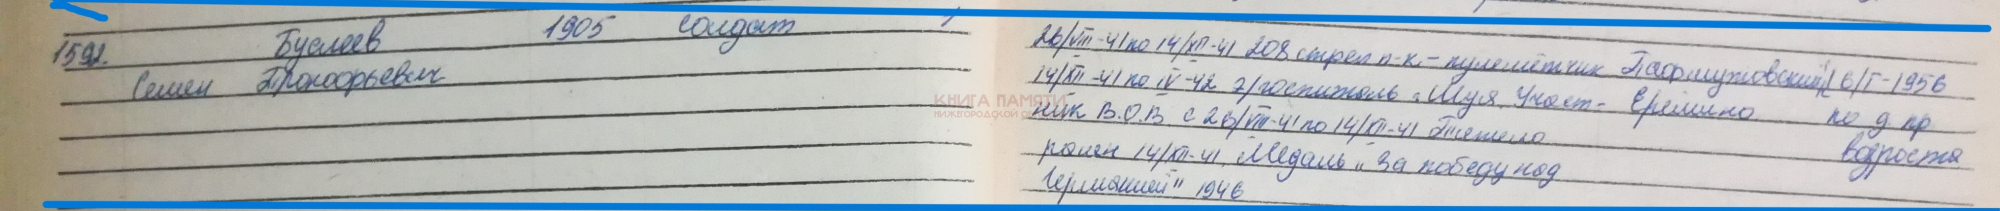 1591. Буслаев 1905 солдат
Семен Прокофьевич
26/VIII-41 по 14/XII-41 208 стрел п-к. - пулемётчик
14/XII-41 по IV-42 э/госпиталь г. Шуя. Участ-
ник В.О.В с 26/VIII-41 по 14/XII-41 Тяжело
ранен 14/XII-41. Медаль "За победу над
Германией" 1946
Ерёмино
6/I-1956
по д пр
возраста
КНИГА ПАМЯТИ
НИЖЕГОРОДСКОЙ